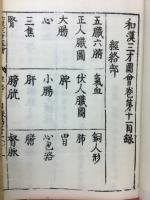 和漢三才圖會卷第十一目録
經絡部
五臟六腑 氣血 銅人形
正人臟圖 伏人臟圖 肺
大腸 脾 胃
心 小腸 心包絡
三焦 肝 膽
腎 膀胱 督脈